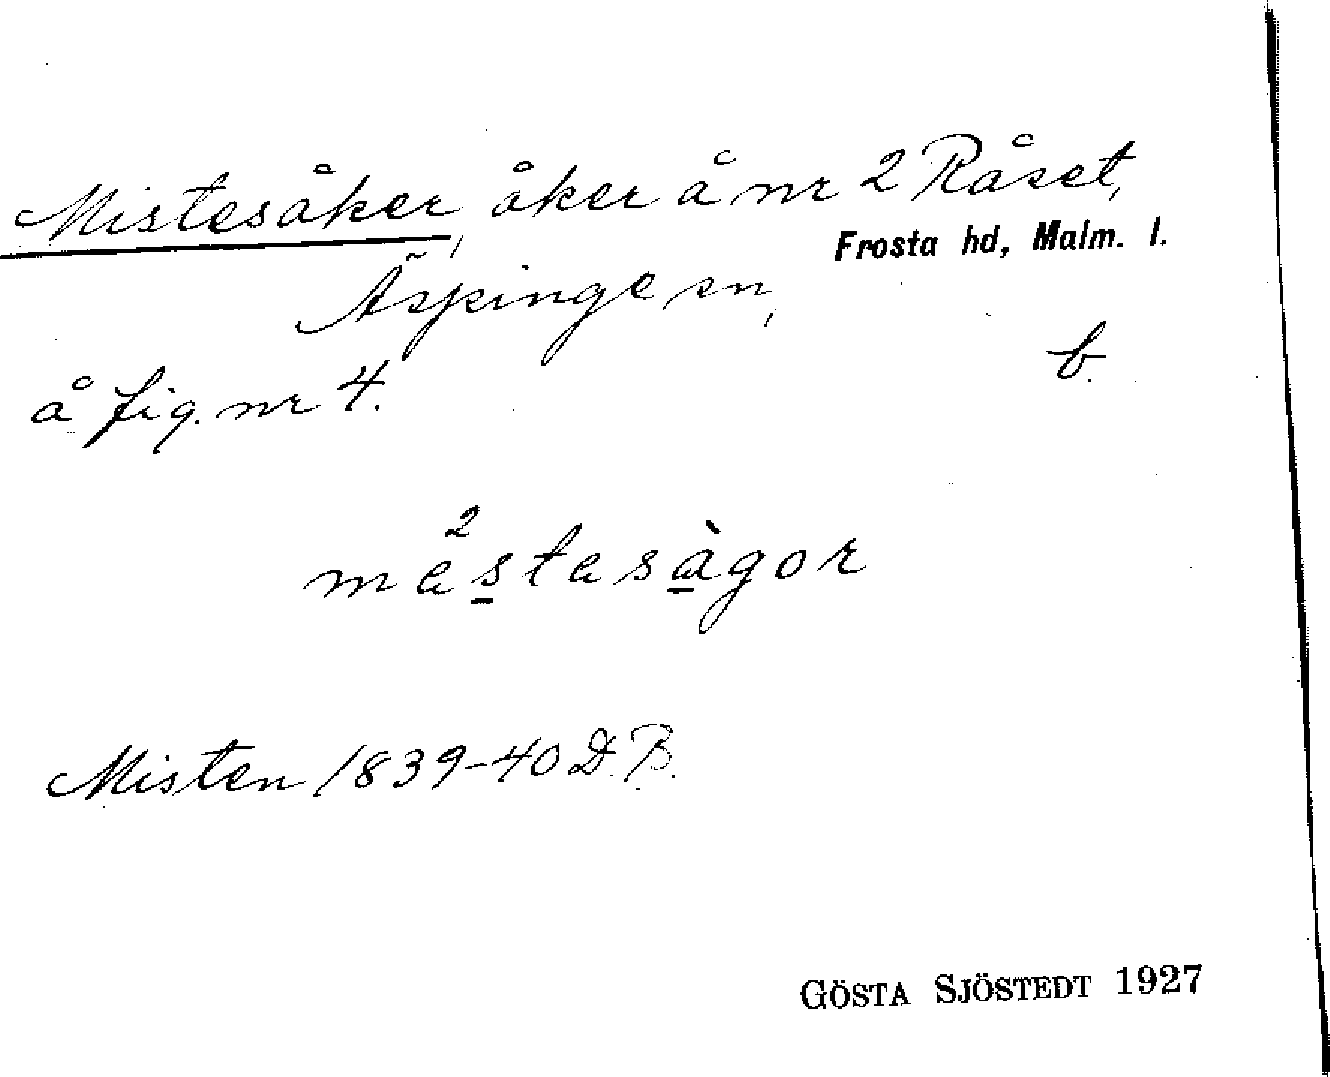 Mistesåker, åker å nr 2 Råset,
Frosta hd, Malm. l.
Äspinge sn,
b.
å fig. nr 4.
Misten 1839-40 D.B.
GÖSTA SJÖSTEDT 1927